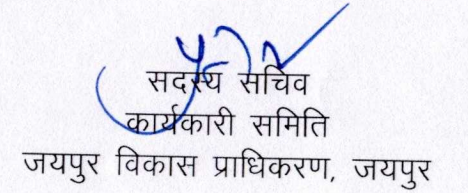 सदस्य सचिव
कार्यकारी समिति
जयपुर विकास प्राधिकरण, जयपुर